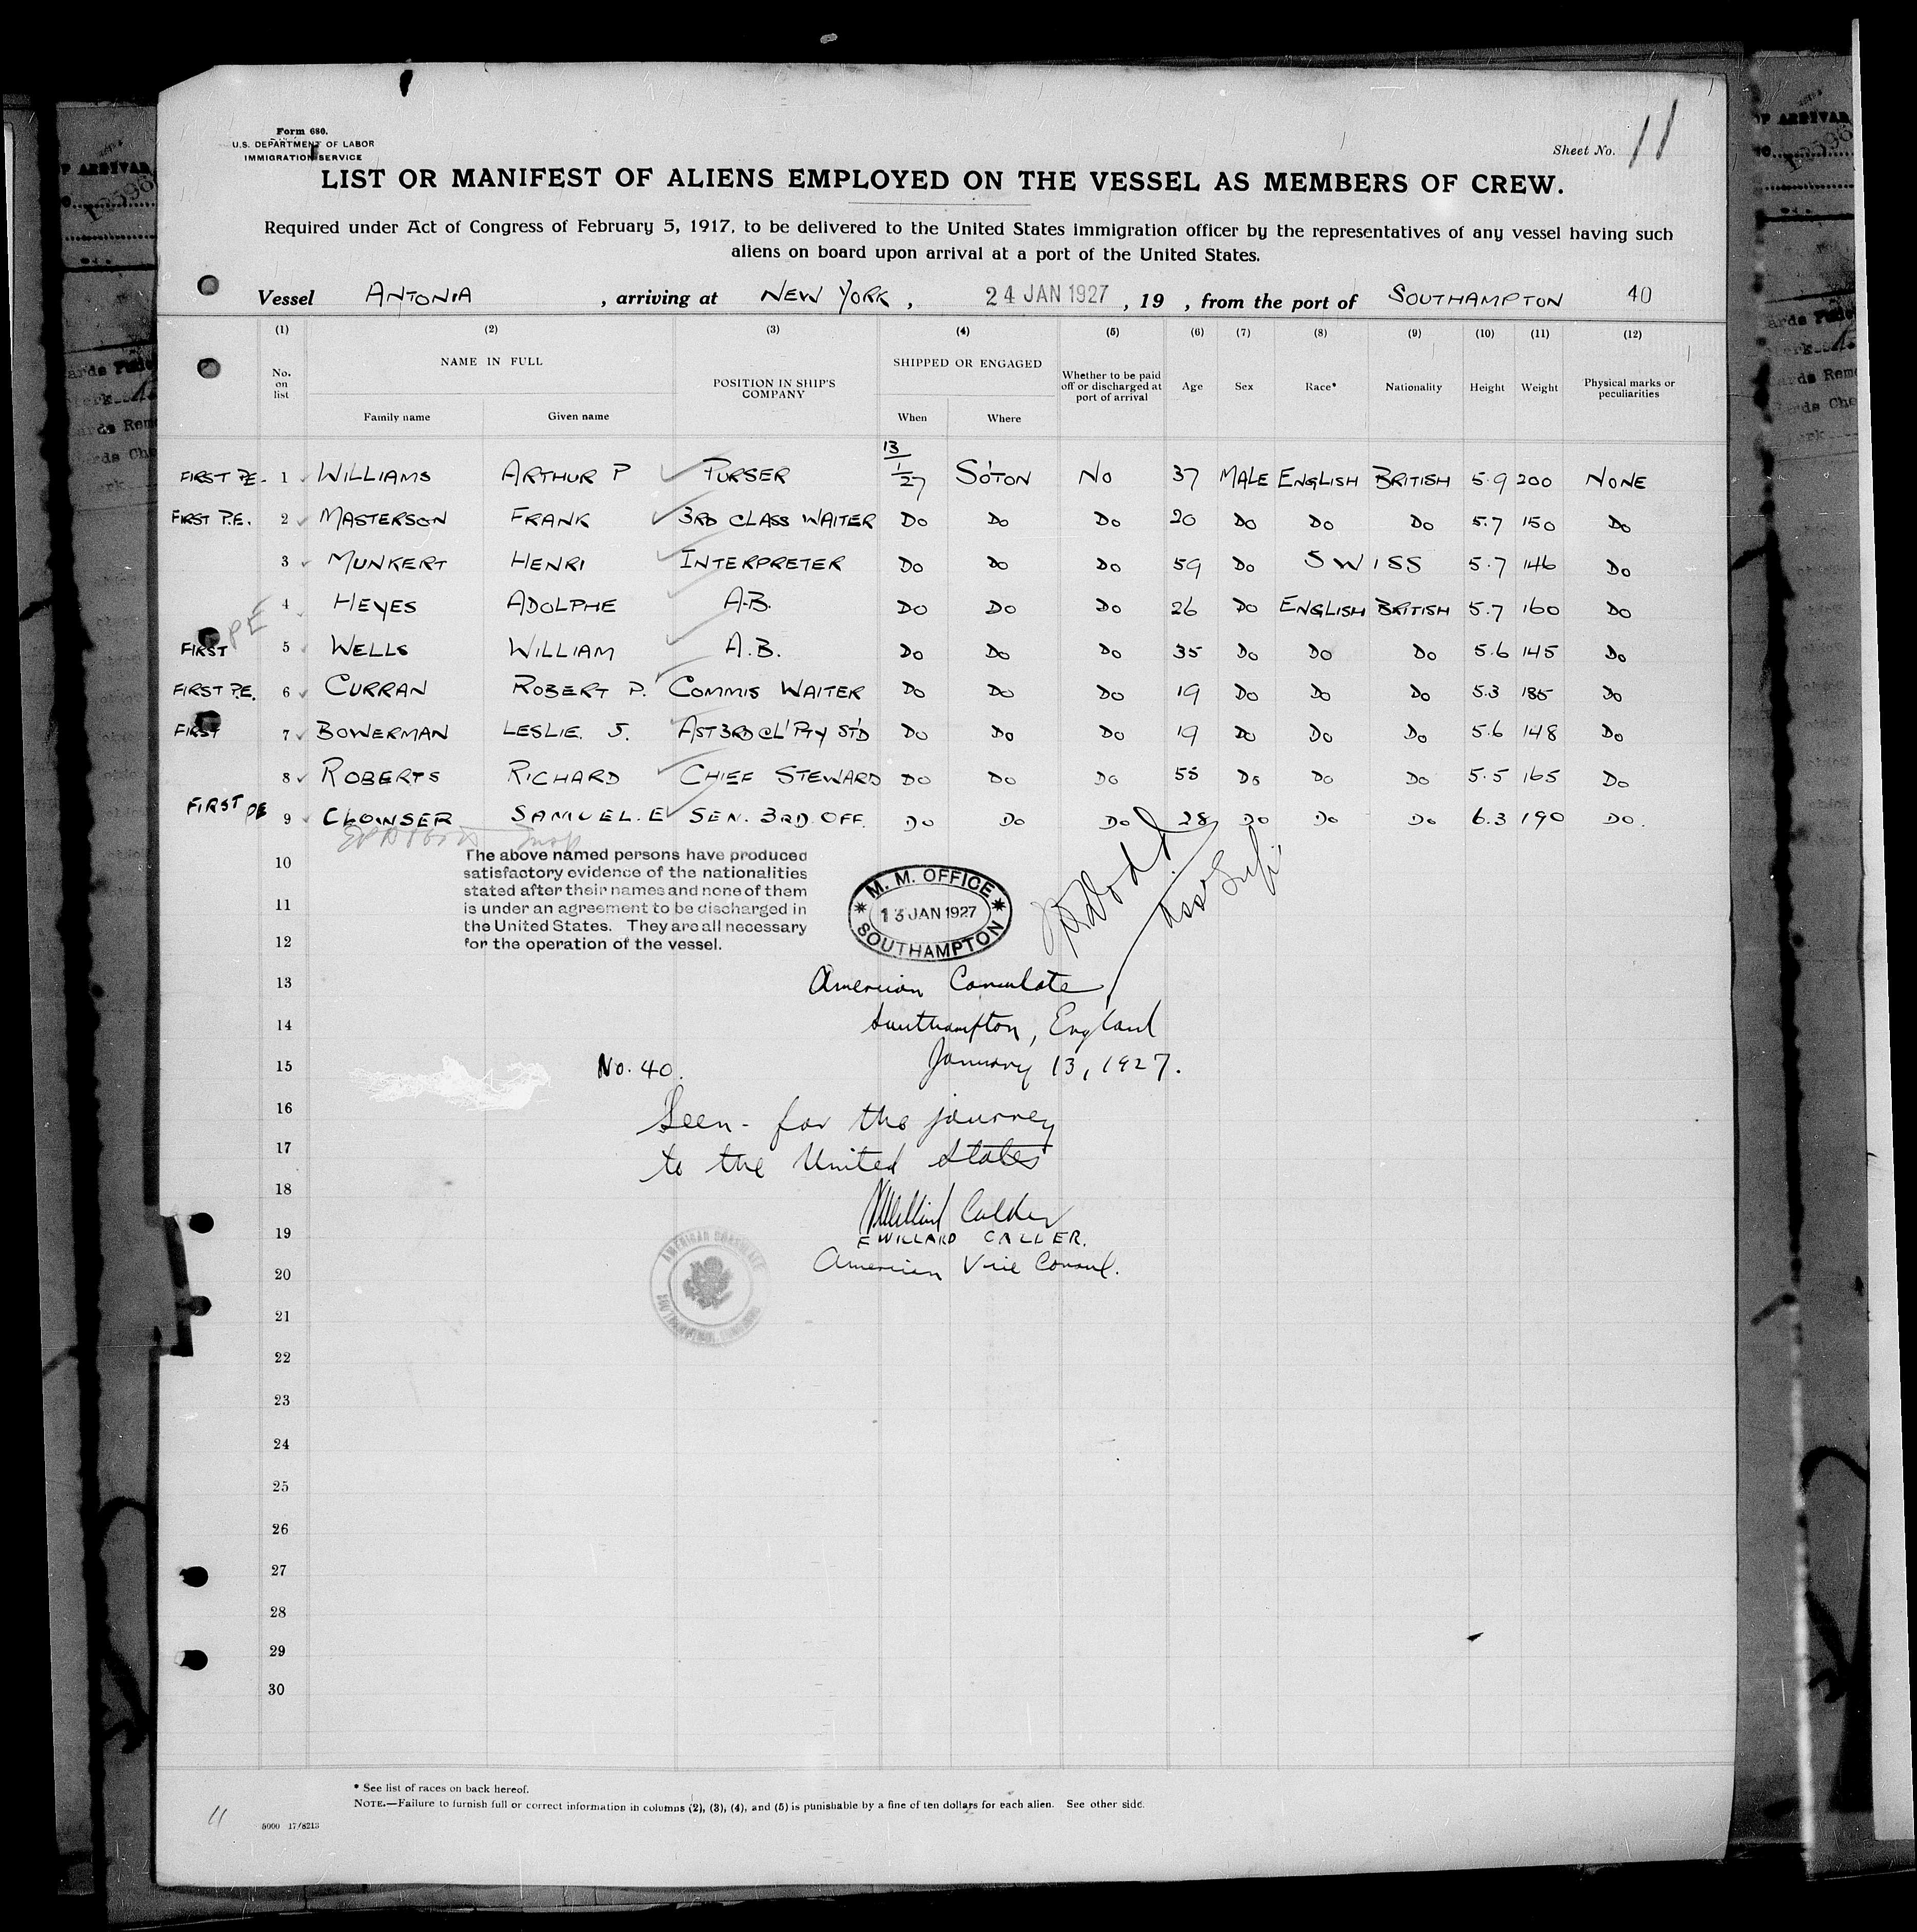 Form 680.
U.S. DEPARTMENT OF LABOR
IMMIGRATION SERVICE
Sheet No. 11
LIST OR MANIFEST OF ALIENS EMPLOYED ON THE VESSEL AS MEMBERS OF CREW.
Required under Act of Congress of February 5, 1917, to be delivered to the United States immigration officer by the representatives of any vessel having such
aliens on board upon arrival at a port of the United States.
Vessel ANTONIA , arriving at NEW YORK , 24 JAN 1927 , 19 , from the port of SOUTHAMPTON 40
(1) (2) (3) (4) (5) (6) (7) (8) (9) (10) (11) (12)
No. on list NAME IN FULL Family name Given name POSITION IN SHIP'S COMPANY SHIPPED OR ENGAGED When Where Whether to be paid off or discharged at port of arrival Age Sex Race* Nationality Height Weight Physical marks or peculiarities
FIRST P.E. 1 WILLIAMS ARTHUR P PURSER 13/1/27 SO'TON NO 37 MALE ENGLISH BRITISH 5.9 200 NONE
FIRST P.E. 2 MASTERSON FRANK 3RD CLASS WAITER DO DO DO 20 DO DO DO 5.7 150 DO
3 MUNKERT HENRI INTERPRETER DO DO DO 59 DO SWISS 5.7 146 DO
PE 4 HEYES ADOLPHE A.B. DO DO DO 26 DO ENGLISH BRITISH 5.7 160 DO
FIRST 5 WELLS WILLIAM A.B. DO DO DO 35 DO DO DO 5.6 145 DO
FIRST P.E. 6 CURRAN ROBERT P. COMMIS WAITER DO DO DO 19 DO DO DO 5.3 185 DO
FIRST 7 BOWERMAN LESLIE. J. AST 3RD CL' P'TY ST'D DO DO DO 19 DO DO DO 5.6 148 DO
8 ROBERTS RICHARD CHIEF STEWARD DO DO DO 55 DO DO DO 5.5 165 DO
FIRST PE 9 CLOWSER SAMUEL. E SEN. 3RD. OFF. DO DO DO 28 DO DO DO 6.3 190 DO.
10
The above named persons have produced
satisfactory evidence of the nationalities
stated after their names and none of them
is under an agreement to be discharged in
the United States. They are all necessary
for the operation of the vessel.
M. M. OFFICE
13 JAN 1927
SOUTHAMPTON
11
12
13 American Consulate
14 Southampton, England
15 No. 40. January 13, 1927.
16 Seen - for the journey
17 to the United States
18 Willard Calder
19 F WILLARD CALDER.
20 American Vice Consul.
AMERICAN CONSULATE
21
22
23
24
25
26
27
28
29
30
* See list of races on back hereof.
NOTE.—Failure to furnish full or correct information in columns (2), (3), (4), and (5) is punishable by a fine of ten dollars for each alien. See other side.
11
5000 17/8213